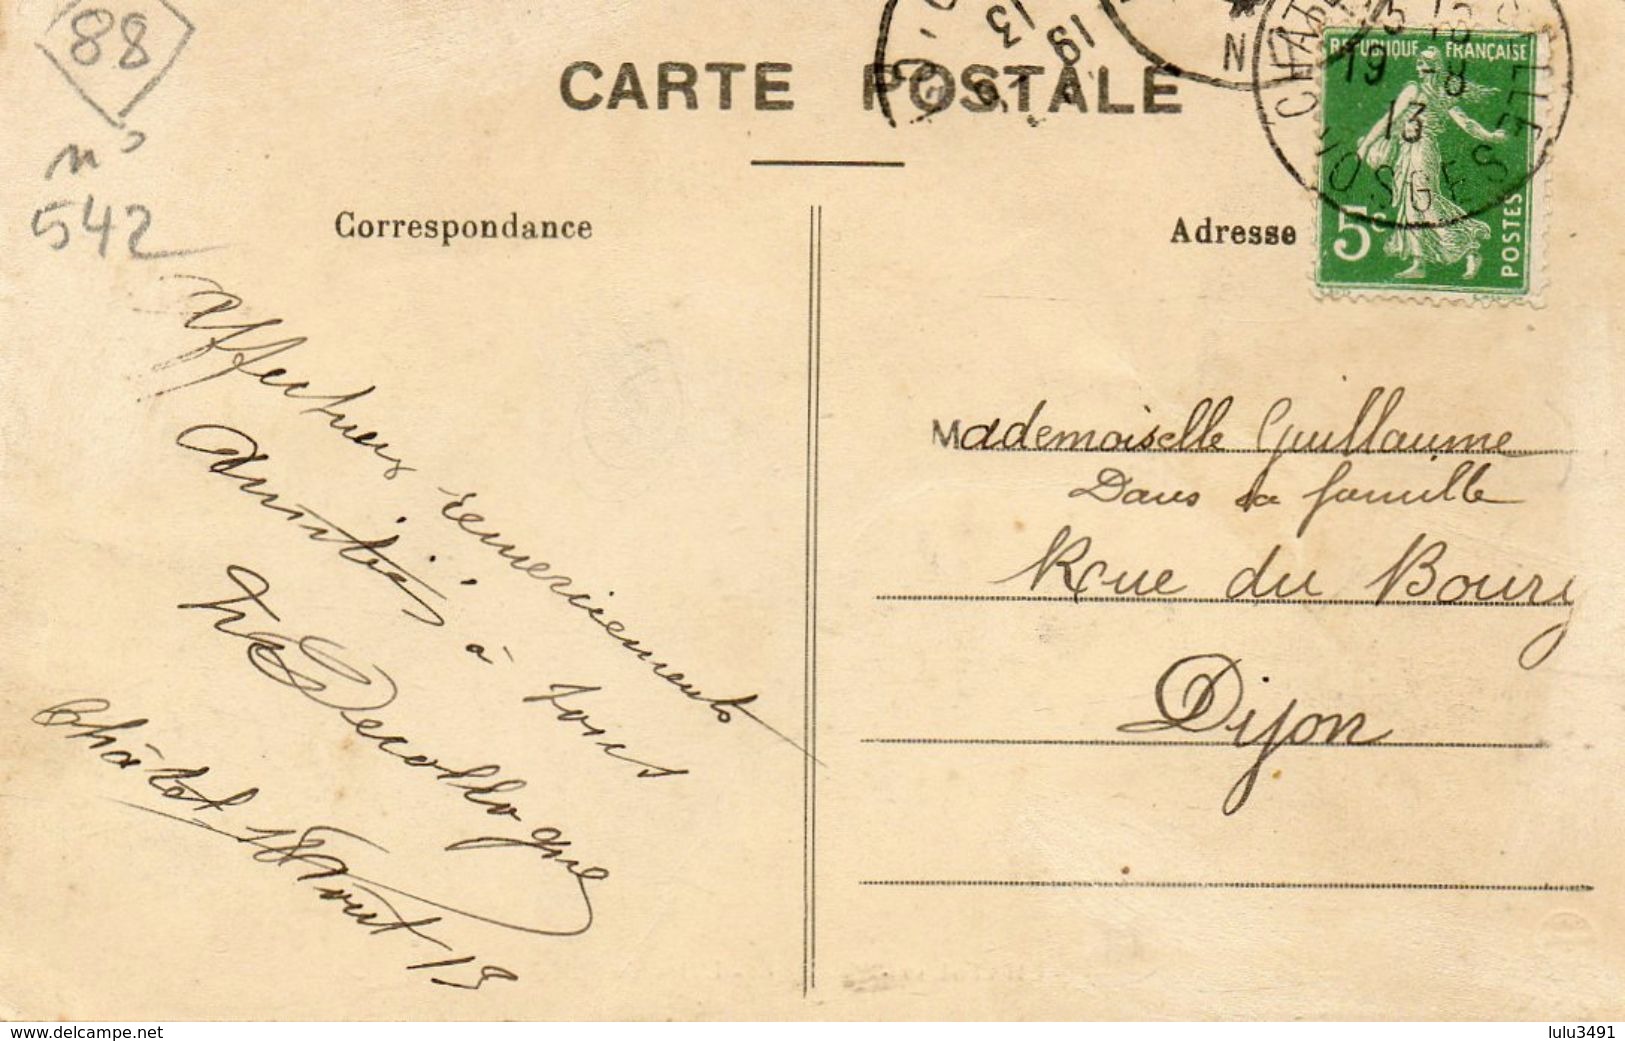 88
n°
542
CARTE POSTALE
Correspondance
Adresse
REPUBLIQUE FRANÇAISE
5c
POSTES
19 -8
13
VOSGES
Affectueux remerciements
Amitiés à tous
Decollogne
Châtel 18 Aout 13
Mademoiselle Guillaume
Dans sa famille
Rue du Bourg
Dijon
www.delcampe.net
lulu3491